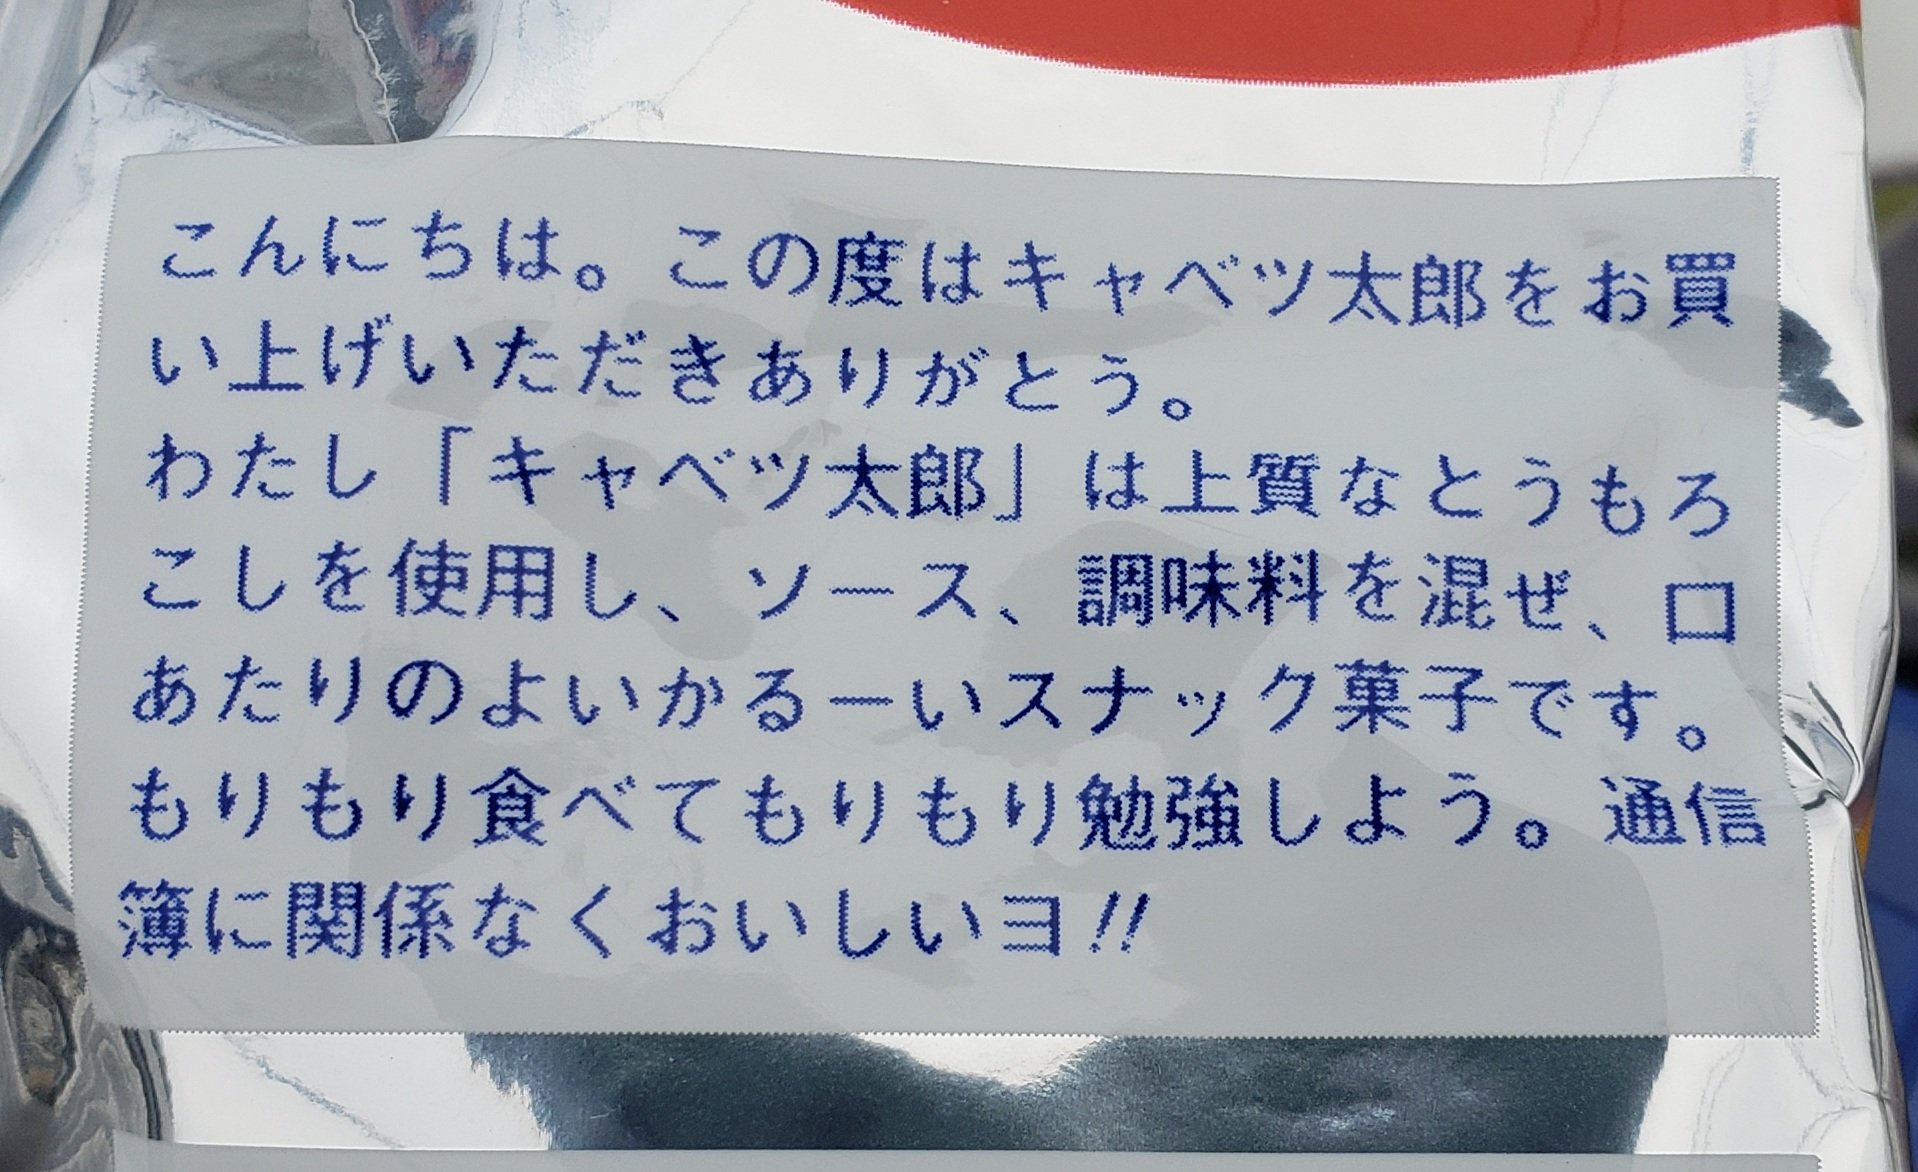 こんにちは。この度はキャベツ太郎をお買
い上げいただきありがとう。
わたし「キャベツ太郎」は上質なとうもろ
こしを使用し、ソース、調味料を混ぜ、口
あたりのよいかるーいスナック菓子です。
もりもり食べてもりもり勉強しよう。通信
簿に関係なくおいしいヨ!!